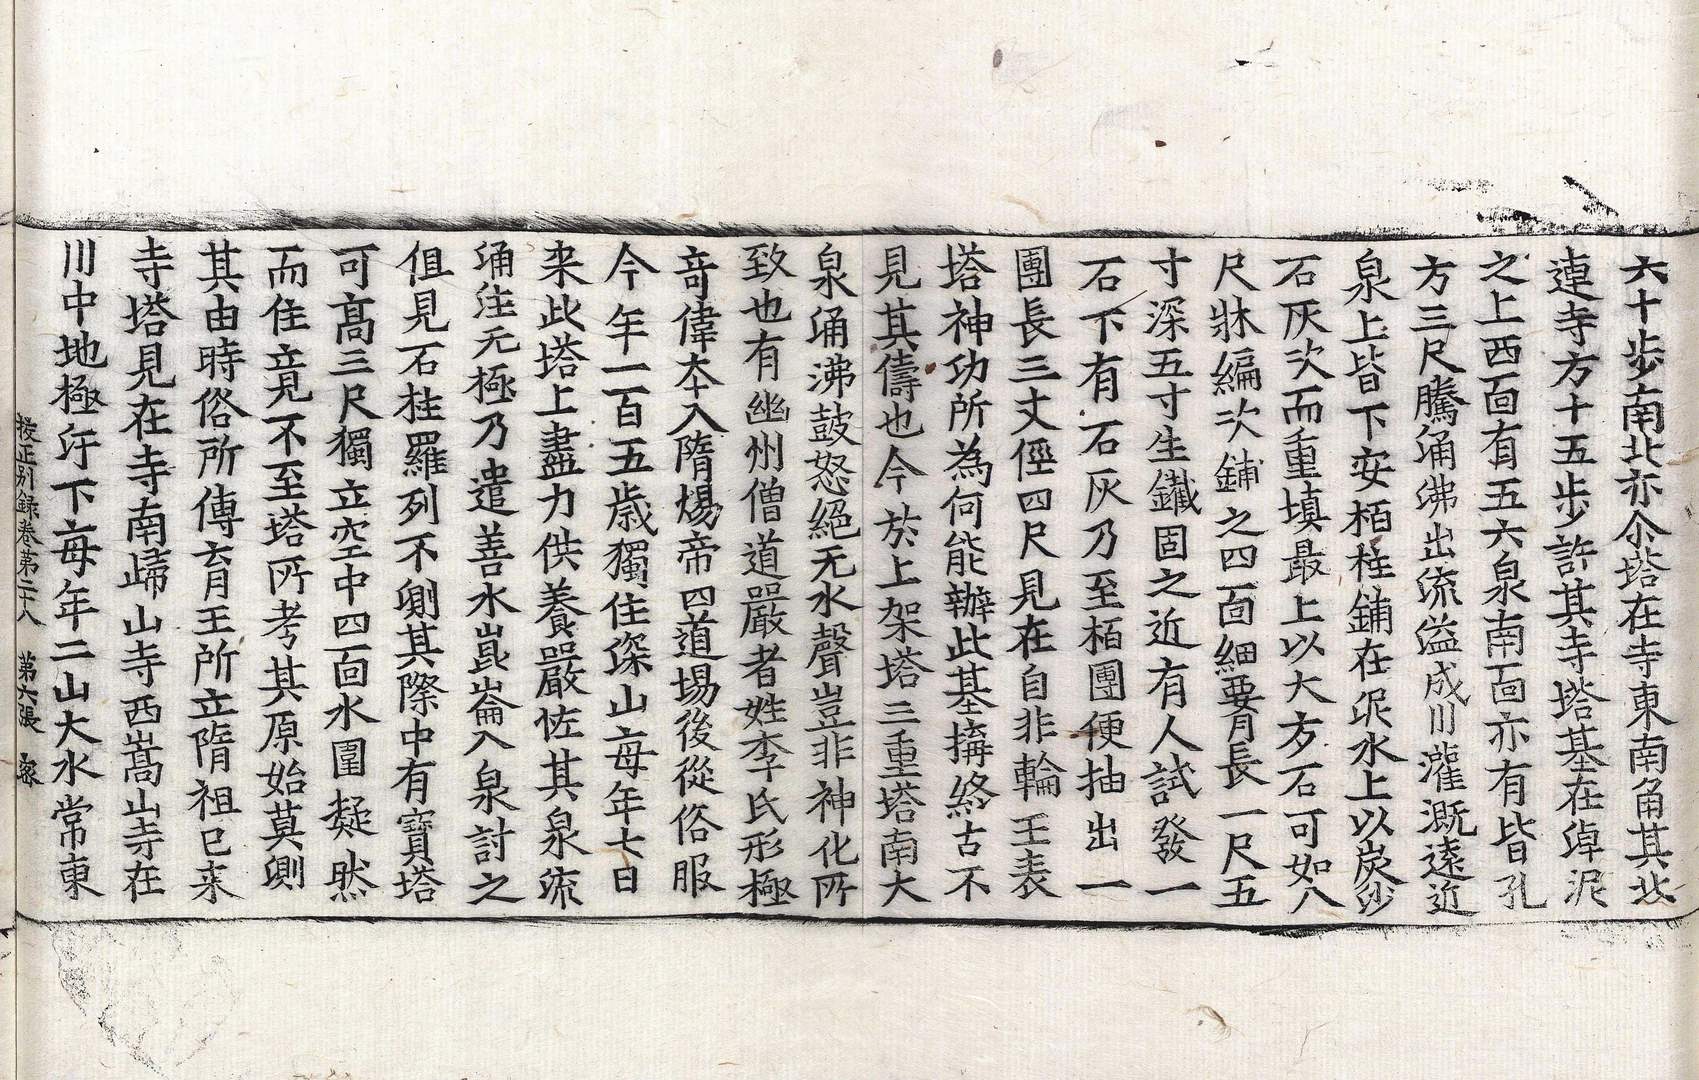 六十步南北亦尒塔在寺東南角其北
連寺方十五步許其寺塔基在淖泥
之上西面有五六泉南面亦有皆孔
方三尺騰涌沸出流溢成川灌溉遠近
泉上皆下安栢柱鋪在泥水上以炭沙
石灰次而重填㝡上以大方石可如八
尺牀編次鋪之四面細腰長一尺五
寸深五寸生鐵固之近有人試發一
石下有石灰乃至栢團便抽出一
團長三丈徑四尺見在自非輪王表
塔神功所為何能辦此基搆終古不
見其儔也今於上架塔三重塔南大
泉涌沸鼓怒絕无水聲豈非神化所
致也有幽州僧道嚴者姓李氏形極
竒偉本入隋煬帝四道場後從俗服
今年一百五歲獨住深山每年七日
来此塔上盡力供養嚴恠其泉流
涌注无極乃遣善水崑崙入泉討之
但見石柱羅列不測其際中有寶塔
可高三尺獨立空中四面水圍凝然
而住竟不至塔所考其原始莫測
其由時俗所傳育王所立隋祖已来
寺塔見在寺南歸山寺西嵩山寺在
川中地極汙下每年二山大水常東
校正別錄卷第二十八　第六張　家